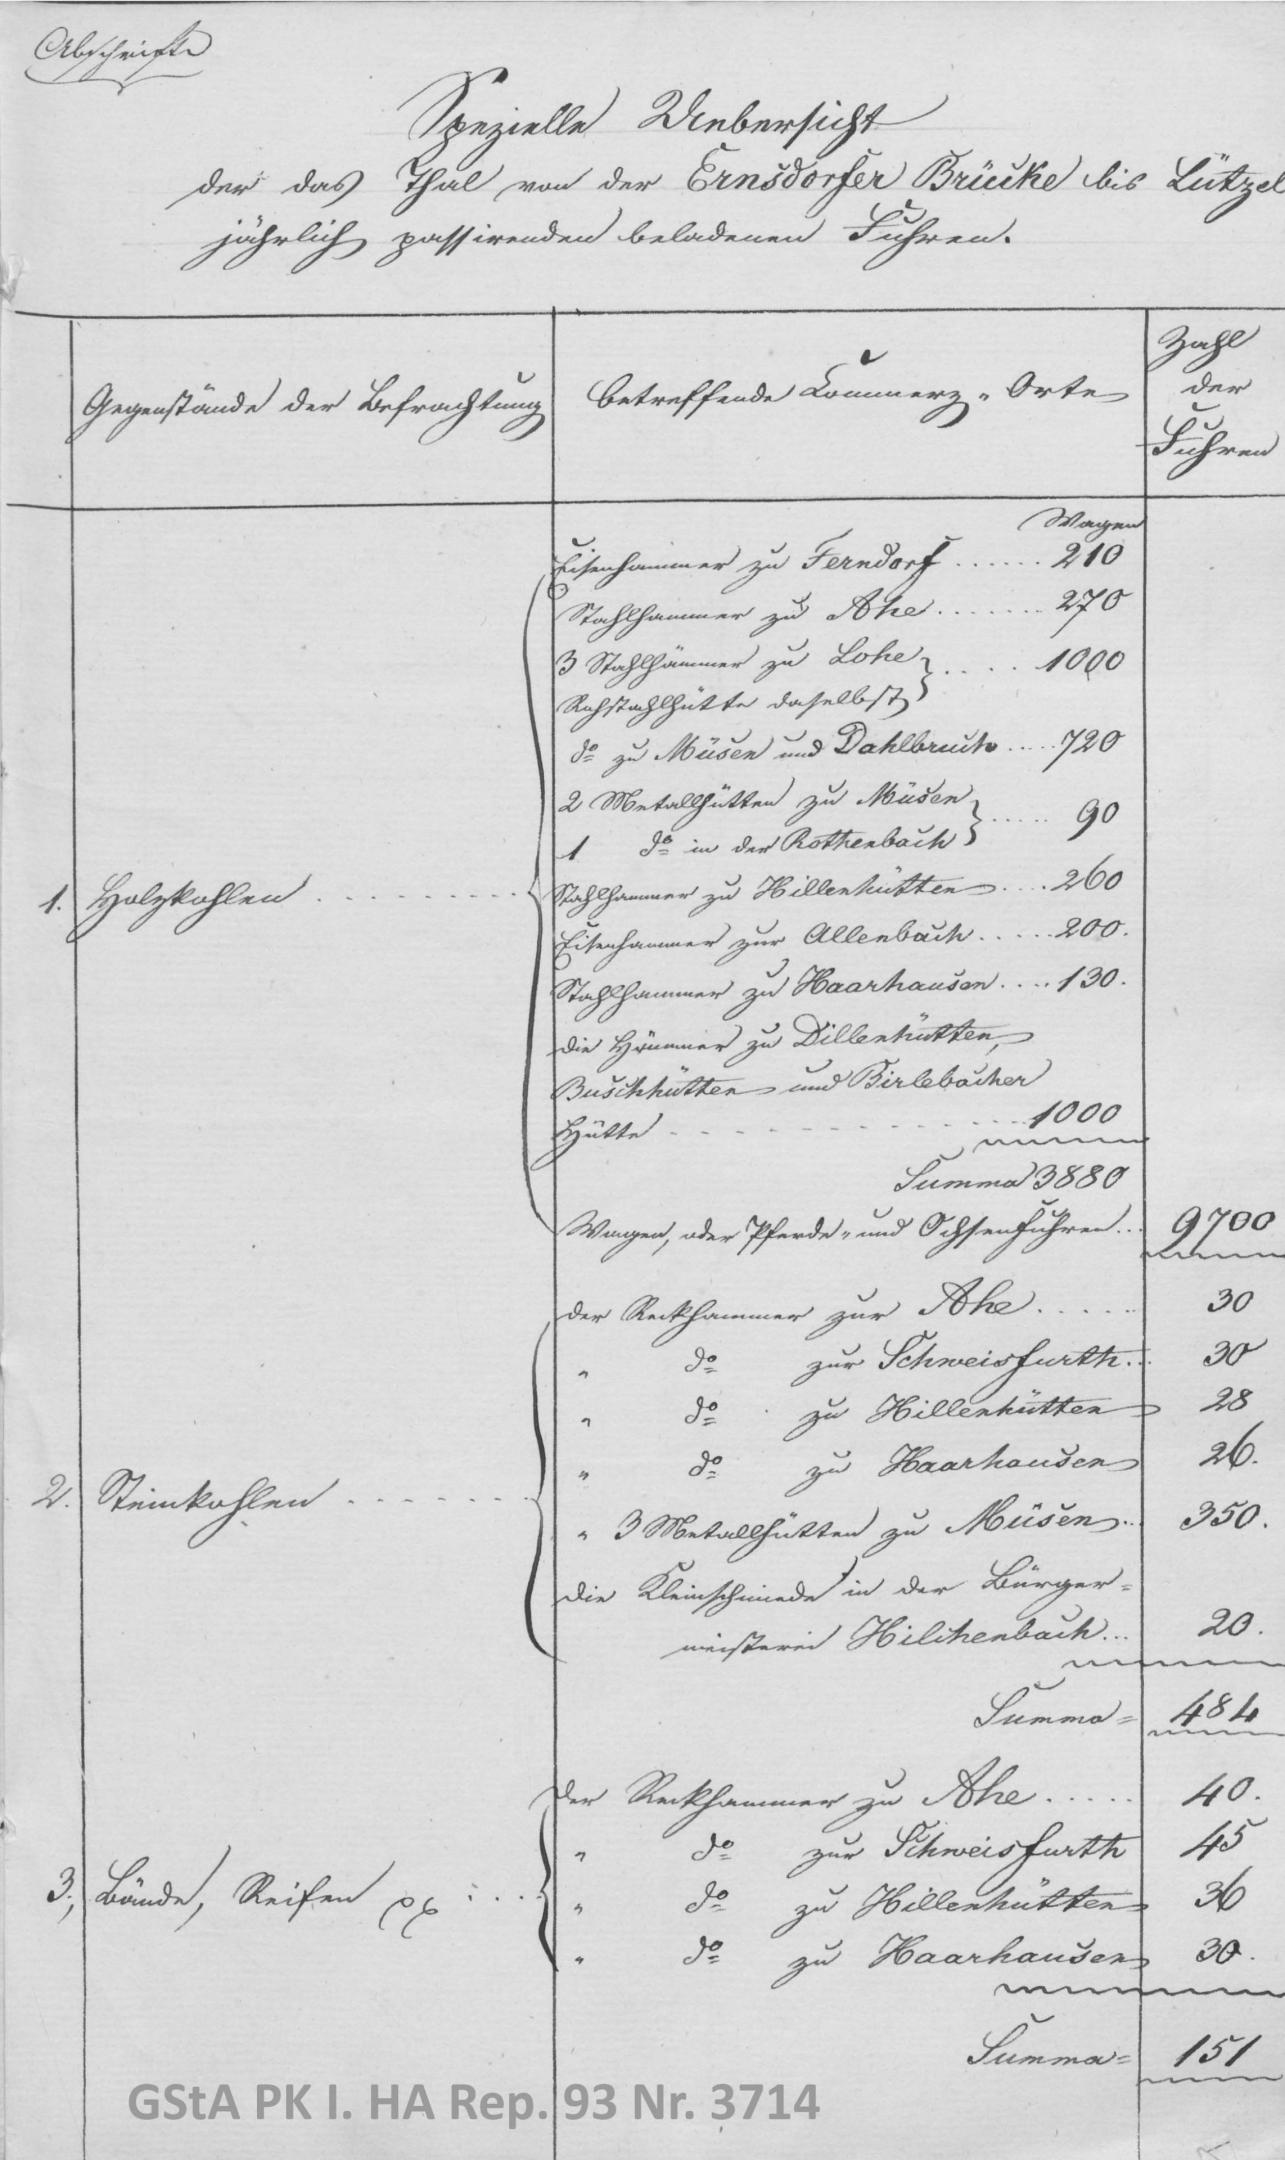 Abschrift
Spezielle Uebersicht
der das Thal von der Ernsdorfer Brücke bis Lützel
jährlich passirenden beladenen Fuhren.
Gegenstände der Befrachtung
betreffende Commerz-Orte
Zahl
der
Fuhren
Wagen
Eisenhammer zu Ferndorf ...... 210
Stahlhammer zu Ahe ....... 270
3 Stahlhämmer zu Lohe } .... 1000
Rohstahlhütte daselbst
do zu Müsen und Dahlbruch ..... 720
2 Metallhütten zu Müsen } ..... 90
1 do in der Rothenbach
1. Holzkohlen
Stahlhammer zu Hillenhütten .... 260
Eisenhammer zur Allenbach ..... 200.
Stahlhammer zu Haarhausen .... 130.
die Hämmer zu Dillenhütten,
Buschhütten und Birlebacher
Hütte ........ 1000
Summa 3880
Wagen, oder Pferde- und Ochsenfuhren ... 9700
der Reckhammer zur Ahe ..... 30
" do zur Schweisfurth ... 30
" do zu Hillenhütten 28
" do zu Haarhausen 26.
2. Steinkohlen
" 3 Metallhütten zu Müsen .. 350.
die Kleinschmiede in der Bürger=
meisterei Hilchenbach ... 20.
Summa = 484
der Reckhammer zu Ahe ..... 40.
" do zur Schweisfurth 45
3., Bände, Reifen pp
" do zu Hillenhütten 36
" do zu Haarhausen 30.
Summa = 151
GStA PK I. HA Rep. 93 Nr. 3714